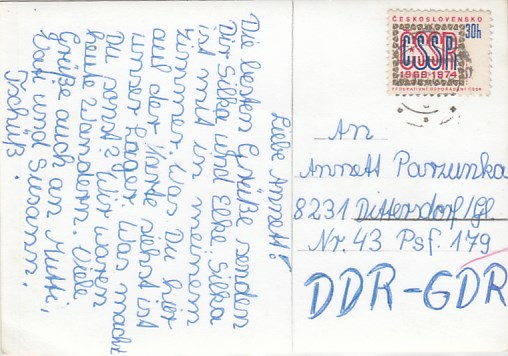 Liebe Annett!
Die besten Grüße senden
Dir Silka und Elke. Silka
ist mit in meinem
Zimmer. Was Du hier
auf der Karte siehst ist
unser Lager. Was macht
Du sonst? Wir waren
heute wandern. Viele
Grüße auch an Mutti,
und Susann.
Tschüß
ČESKOSLOVENSKO
30h
ČSSR
1968-1974
An
Annett Parzunka
8231 Dittersdorf/Gl
Nr. 43 Psf. 179
DDR-GDR